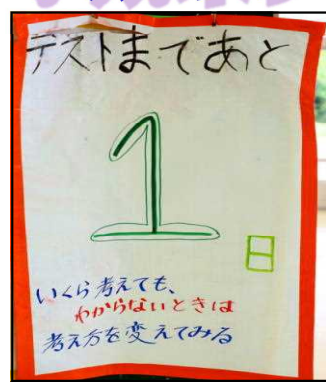 テストまであと
1
日
いくら考えても、
わからないときは
考え方を変えてみる